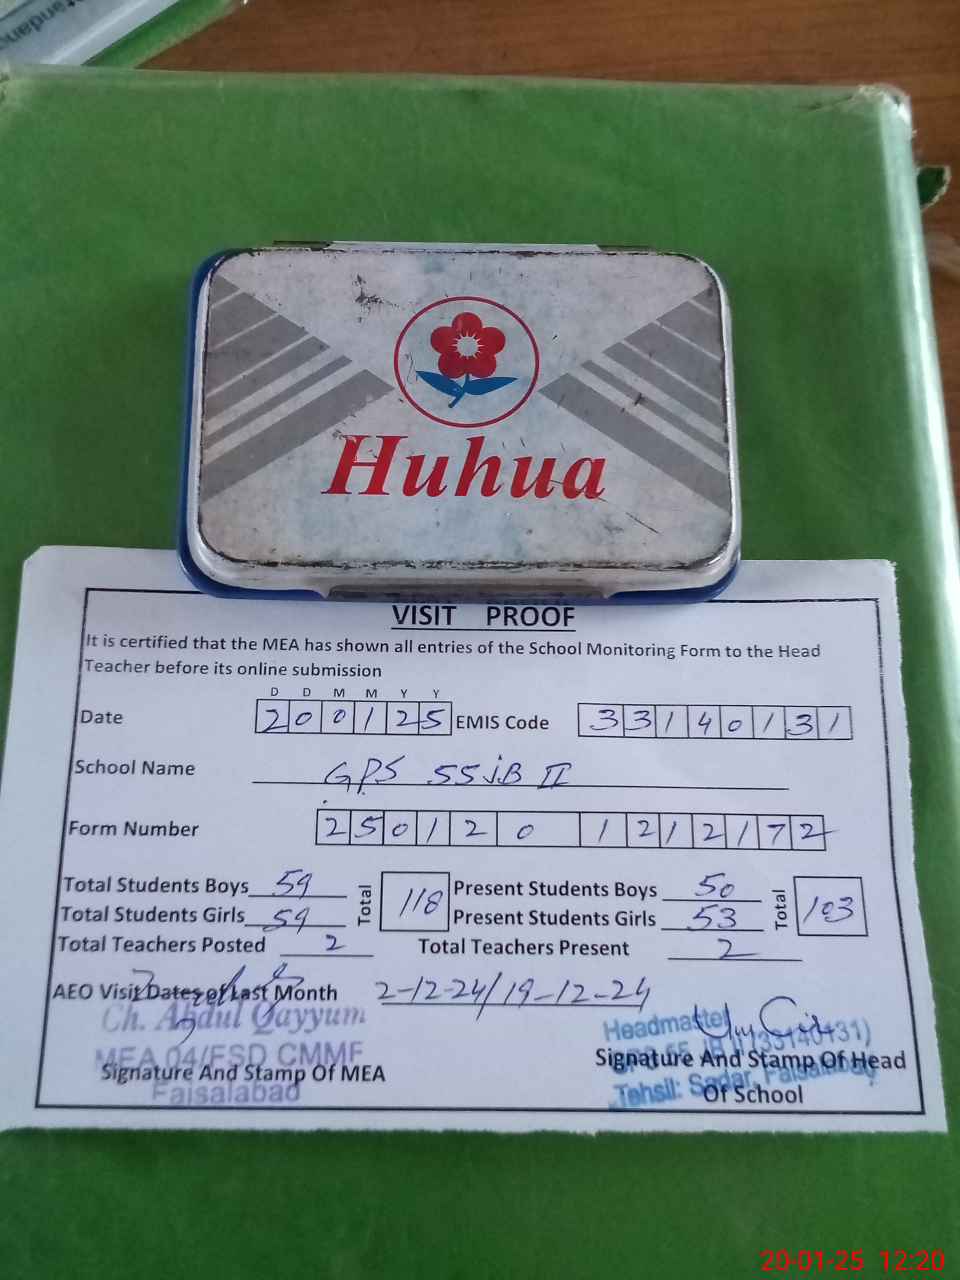 Huhua
VISIT PROOF
It is certified that the MEA has shown all entries of the School Monitoring Form to the Head
Teacher before its online submission
D D M M Y Y
Date 2 0 0 1 2 5 EMIS Code 3 3 1 4 0 1 3 1
School Name GPS 55 JB II
Form Number 2 5 0 1 2 0 1 2 1 2 1 7 2
Total Students Boys 59 Total 118 Present Students Boys 50 Total 103
Total Students Girls 59 Present Students Girls 53
Total Teachers Posted 2 Total Teachers Present 2
AEO Visit Dates of Last Month 2-12-24/19-12-24
Ch. Abdul Qayyum
MEA 04/FSD CMMF
Faisalabad
Signature And Stamp Of MEA
Headmaster
Tehsil: Sadar, Faisalabad
Signature And Stamp Of Head
Of School
20-01-25 12:20